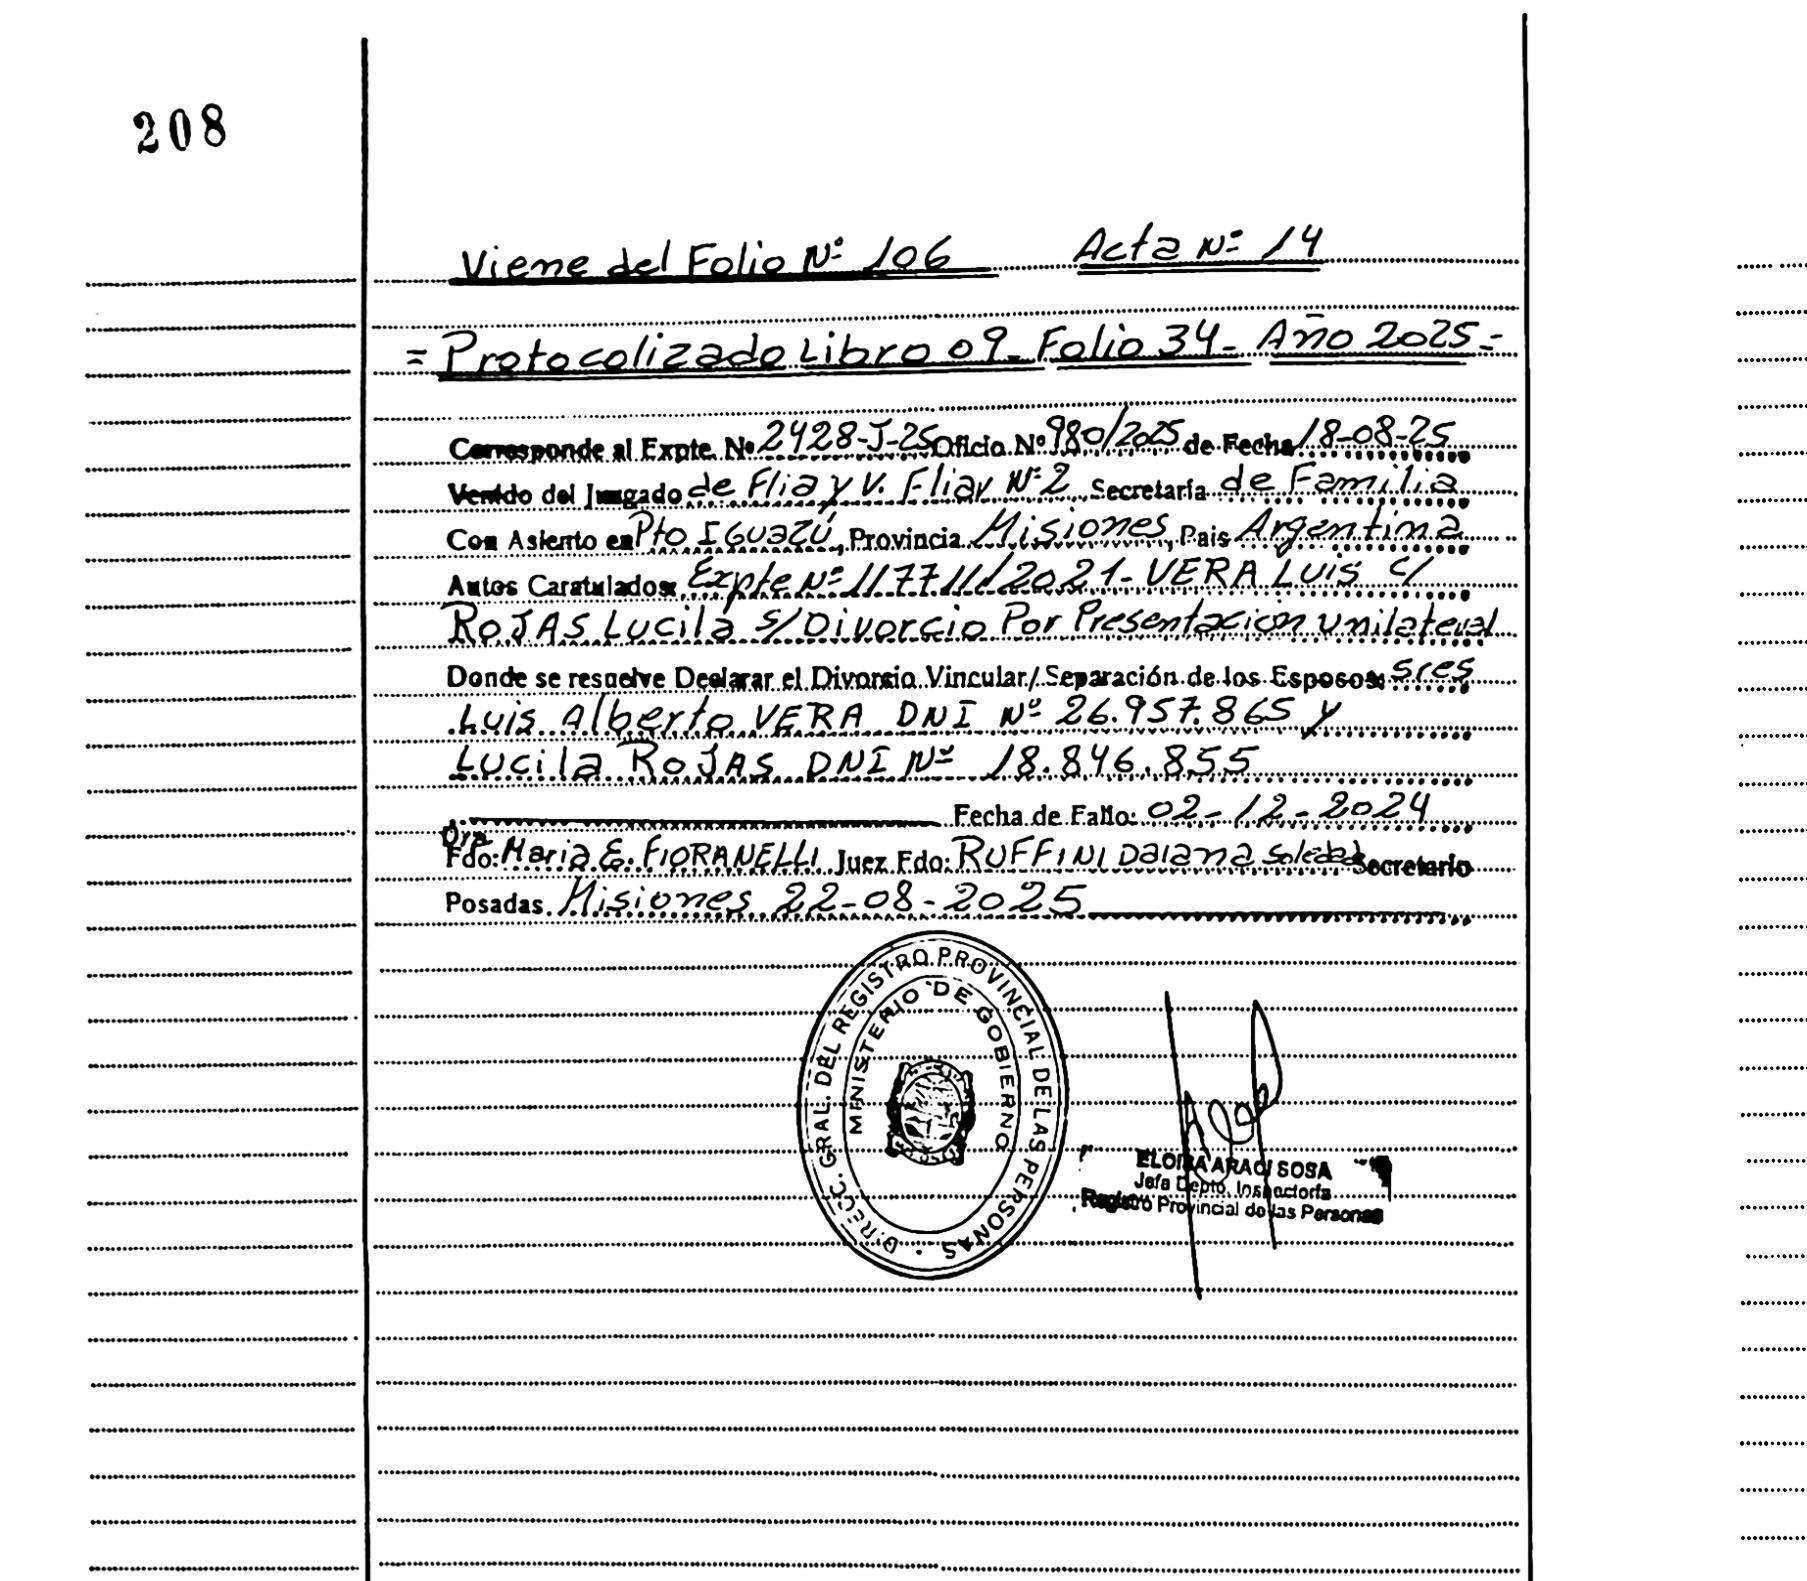 208
Viene del Folio Nº 106 Acta Nº 14
= Protocolizado Libro 09_ Folio 34_ Año 2025=
Corresponde al Expte. Nº 2428-J-25 Oficio Nº 980/2025 de Fecha 18-08-25
Venido del Juzgado de Flia y V. Fliar Nº2 Secretaría de Familia
Con Asiento en Pto IGuazú, Provincia Misiones, País Argentina
Autos Caratulados: Expte Nº 117711/2021- VERA Luis c/
ROJAS Lucila s/Divorcio Por Presentación unilateral
Donde se resuelve Declarar el Divorcio Vincular/ Separación de los Esposos: sres
Luis Alberto VERA DNI Nº 26.957.865 y
Lucila ROJAS DNI Nº 18.846.855
Fecha de Fallo: 02-12-2024
Dra
Fdo: Maria E. FIORANELLI Juez Fdo: RUFFINI Daiana Soledad Secretario
Posadas Misiones 22-08-2025
DIRECC. GRAL. DEL REGISTRO PROVINCIAL DE LAS PERSONAS
MINISTERIO DE GOBIERNO
ELOISA ARACI SOSA
Jefa Depto. Inspectoría
Registro Provincial de las Personas